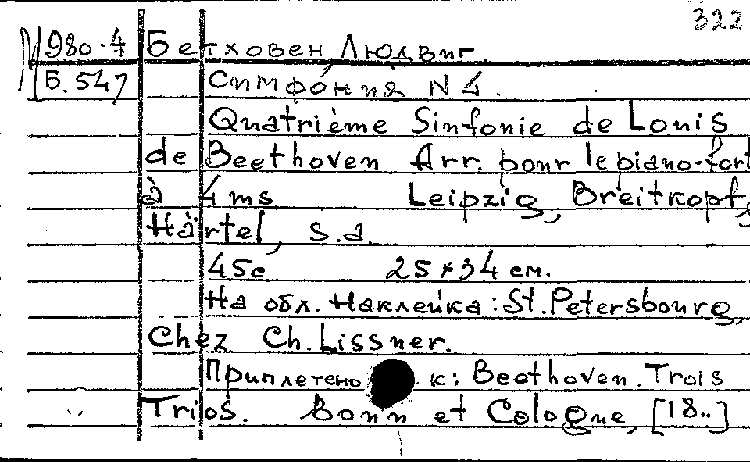 322
980-4 Бетховен, Людвиг.
Б. 547 Симфония N 4.
Quatrième Sinfonie de Louis
de Beethoven Arr. pour le piano-fort
à 4 ms Leipzig, Breitkopf,
Härtel, s.a.
45c 25×34 см.
На обл. наклейка: St. Petersbourg,
Chez Ch. Lissner.
Приплетено к: Beethoven. Trois
Trios. Bonn et Cologne, [18..]